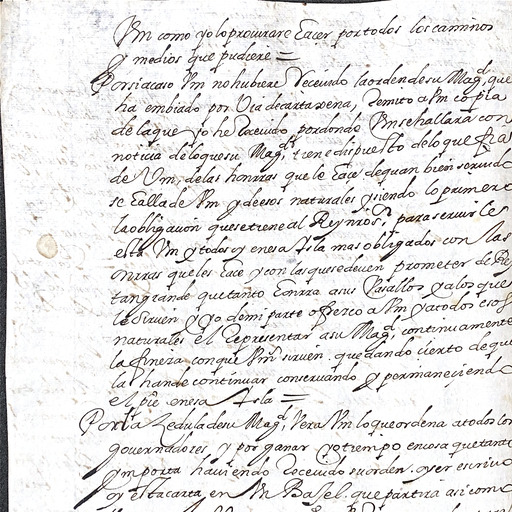 Vm como yo lo procurare hacer por todos los caminos
y medios que pudiere =
Por si acaso Vm no hubiere recevido la orden de su Mag.d que
ha embiado por via de cartaxena, remito a Vm copia
de la que yo he recevido, por donde Vm se hallara con
noticia de lo que su Mag.d tiene dispuesto de lo que
de Vm, de las honrras que le hace, de quan bien servido
se halla de Vm y de esos naturales y siendo lo primero
la obligacion que se tiene al Rey nro s.r para servirle
esta Vm y todos y en esa Isla mas obligados con las
onrras que les hace y con las que se deven prometer de
tan grande que tanto honrra a sus Vasallos y a los que
le sirven y yo de mi parte ofrezco a Vm y a todos esos
naturales el representar a su Mag.d continuamente
la fineza con que Vm sirven, quedando cierto de que
la han de continuar conservando y permaneciendo
el pie en esa Isla =
Por la Zedula de su Mag.d vera Vm lo que ordena a todos los
governadores, y por ganar yo tiempo en cosa que tanto
ymporta haviendo recevido su orden, oyer escrivo
oy esta carta en Vn Baxel, que partira asi como